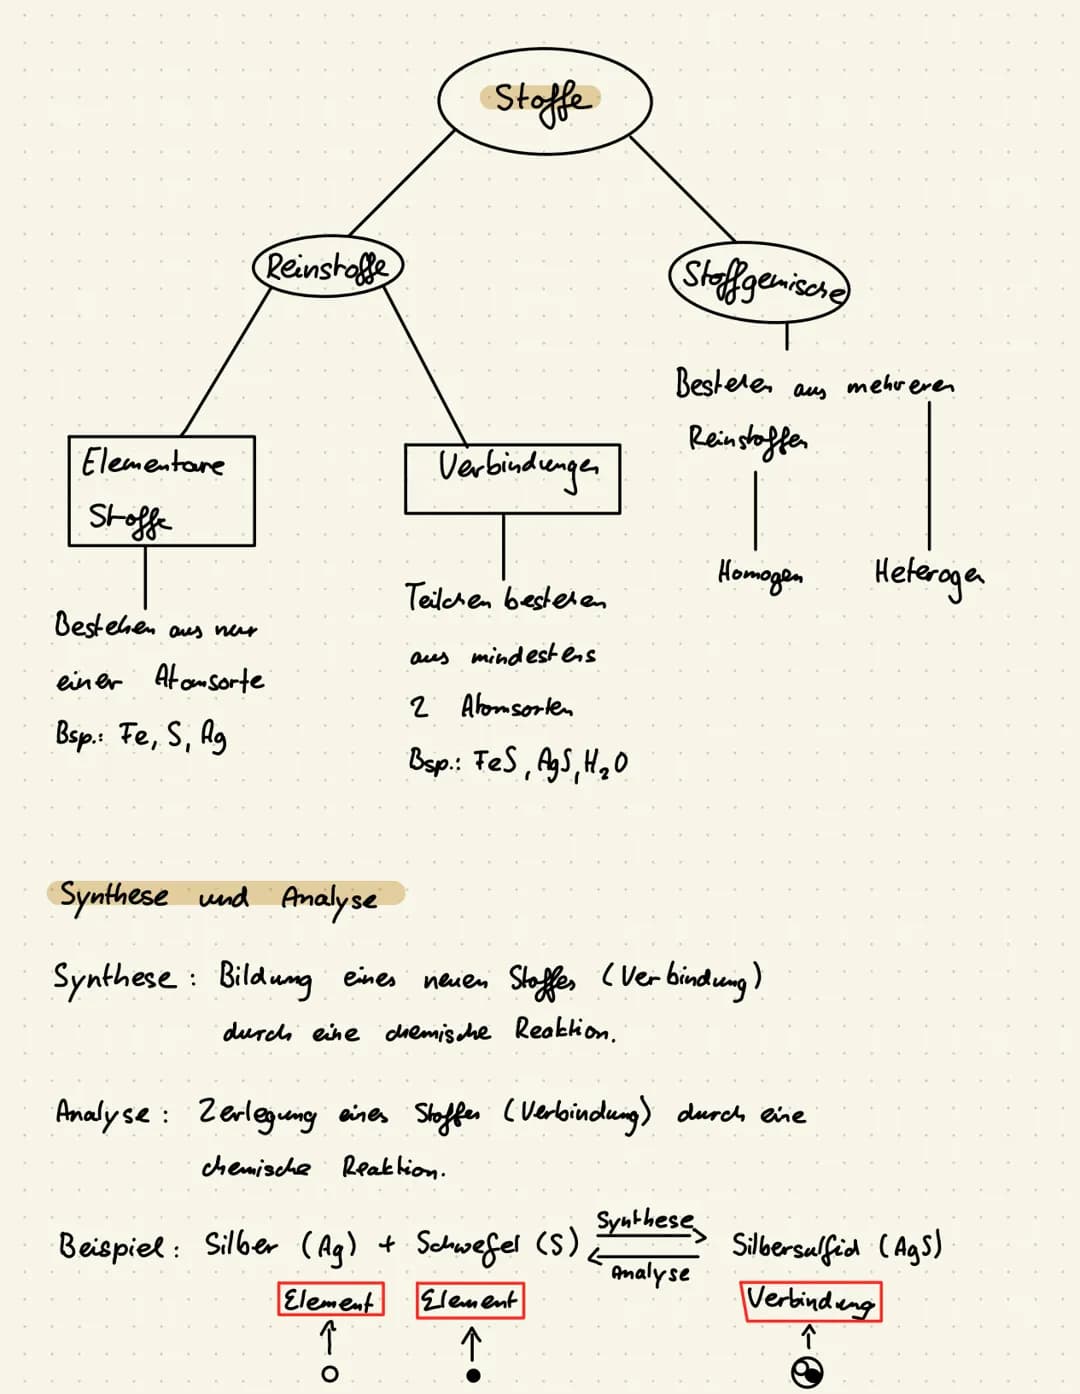 Stoffe
Reinstoffe
Stoffgemische
Elementare
Stoffe
Bestehen aus nur
einer Atomsorte
Bsp.: Fe, S, Ag
Verbindungen
Teilchen bestehen
aus mindestens
2 Atomsorten
Bsp.: FeS, AgS, H₂O
Bestehen aus mehreren
Reinstoffen
Homogen
Heterogen
Synthese und Analyse
Synthese: Bildung eines neuen Stoffes (Verbindung)
durch eine chemische Reaktion.
Analyse: Zerlegung eines Stoffes (Verbindung) durch eine
chemische Reaktion.
Synthese
Beispiel: Silber (Ag) + Schwefel (S) ⇌ Silbersulfid (AgS)
Analyse
Element Element Verbindung